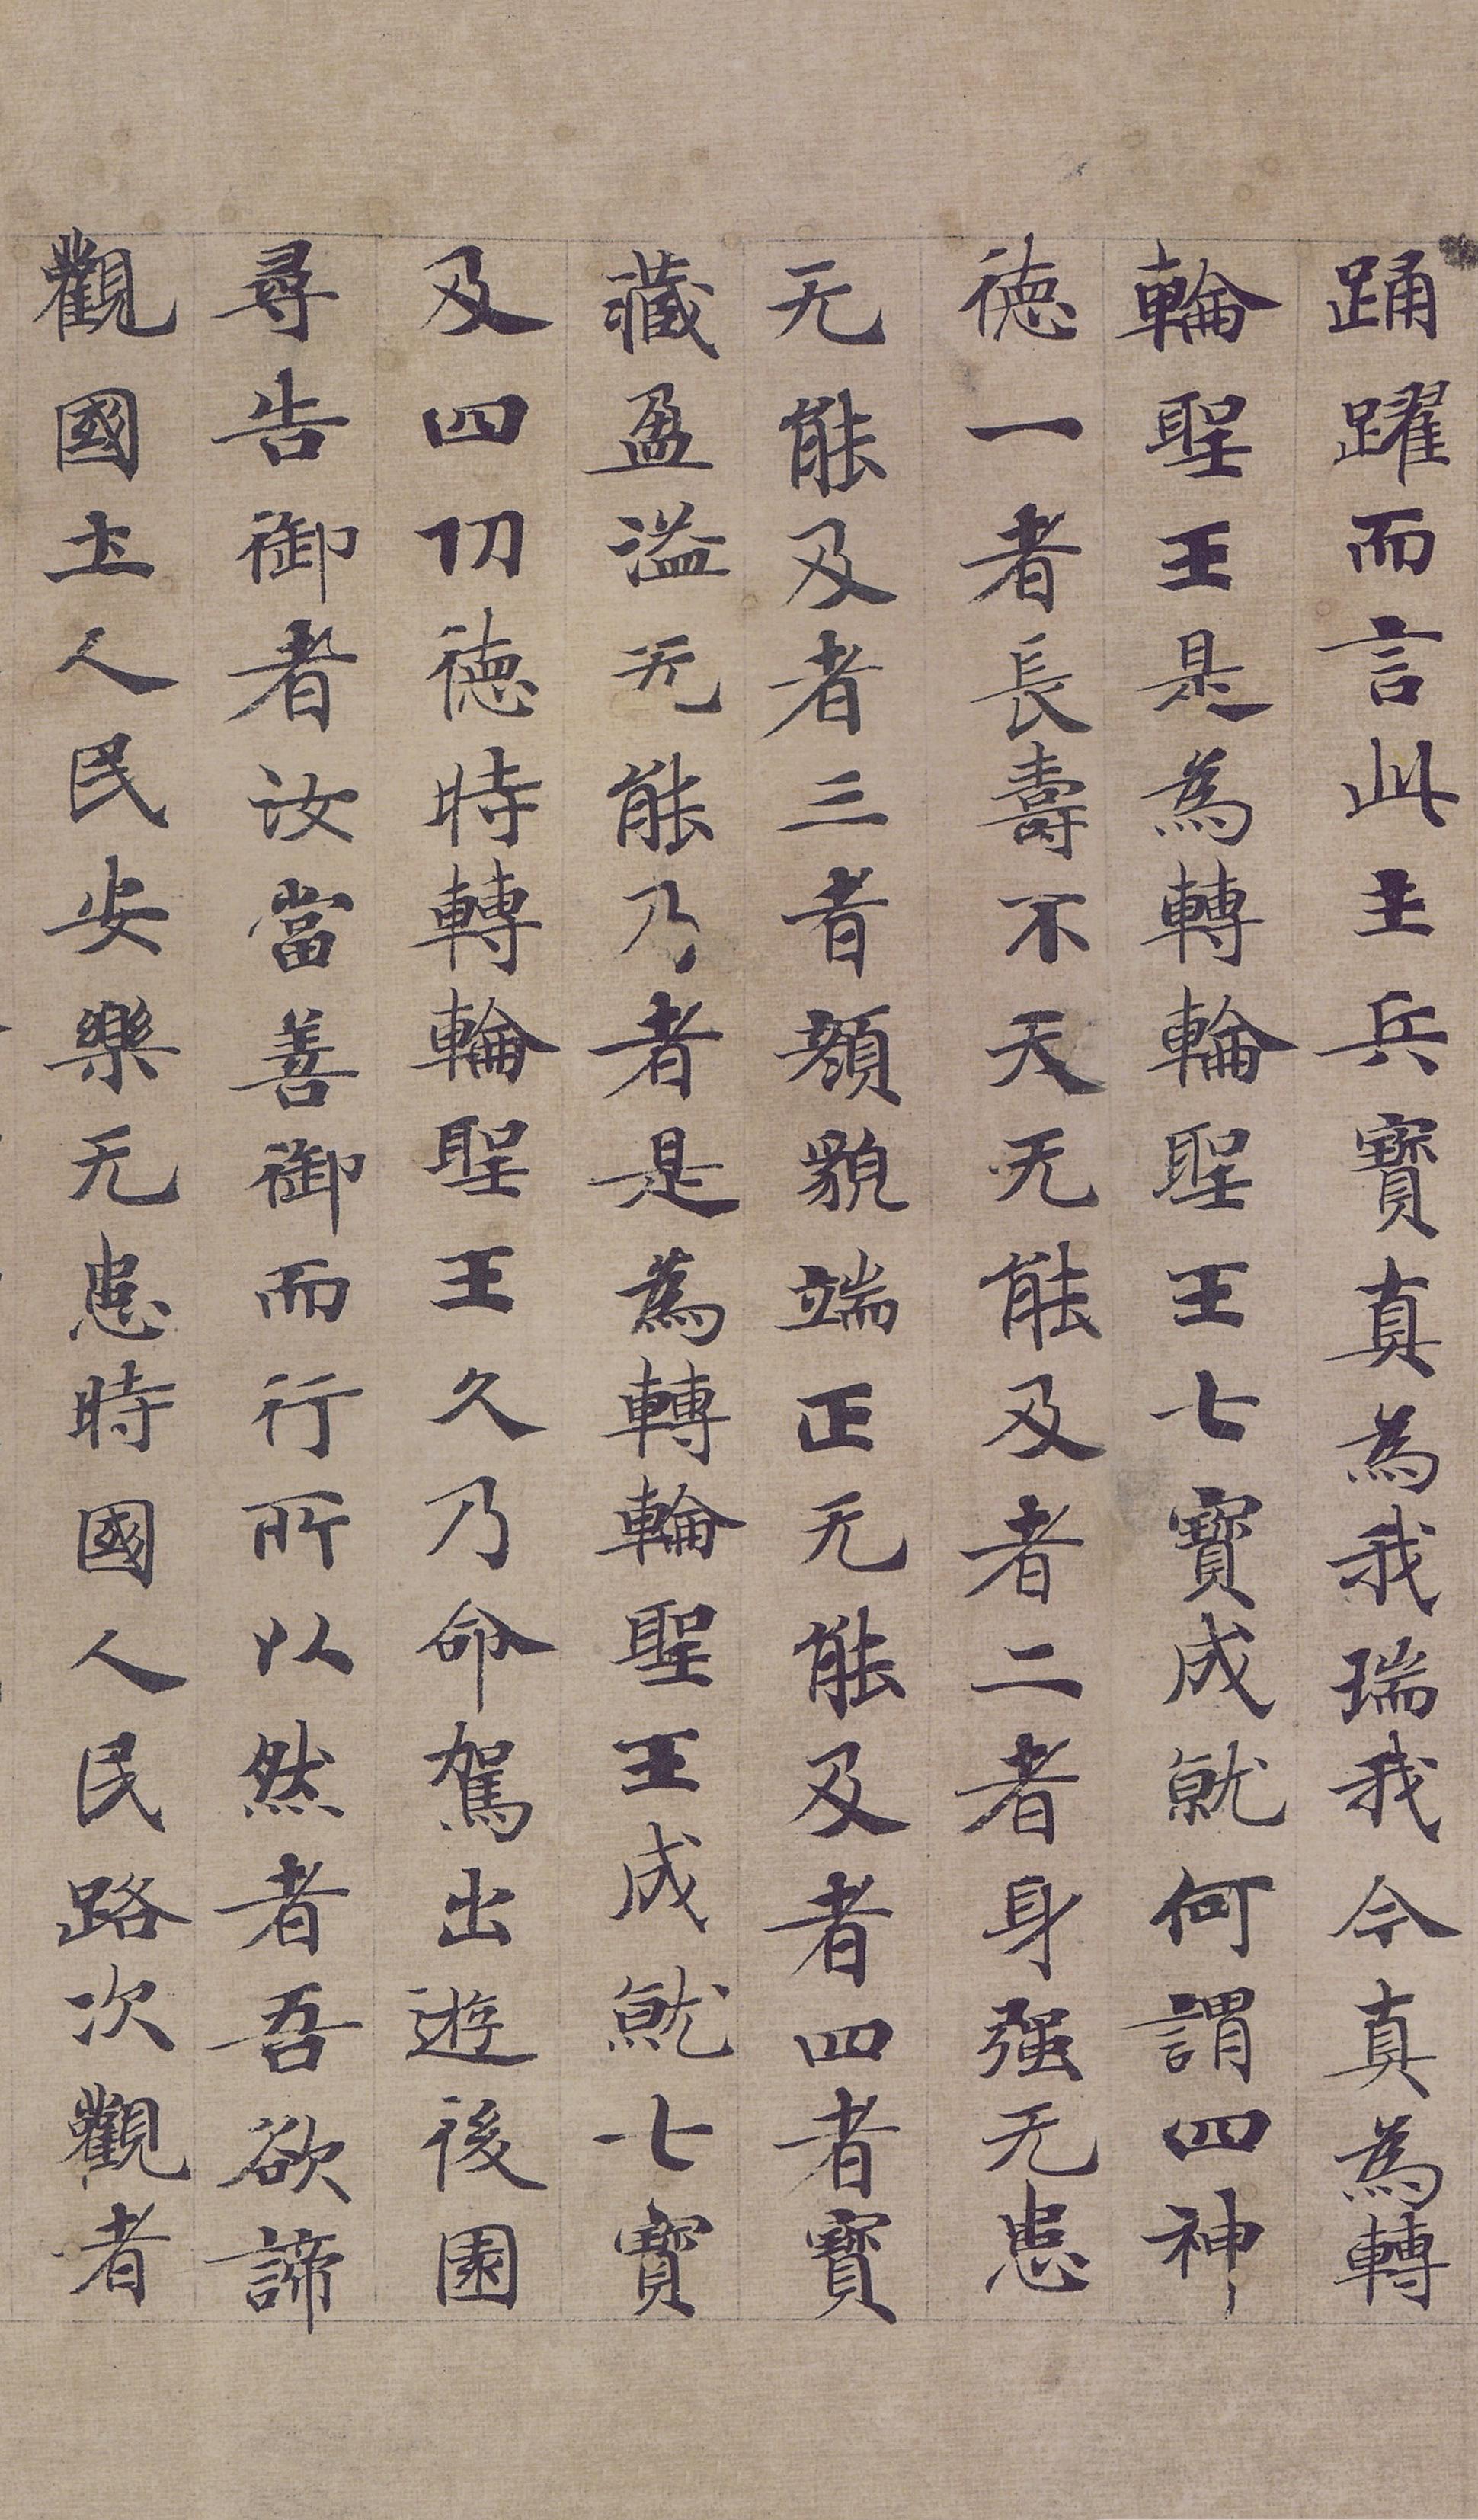 踊躍而言此主兵寶真為我瑞我今真為轉
輪聖王是為轉輪聖王七寶成就何謂四神
德一者長壽不夭无能及者二者身強无患
无能及者三者顏貌端正无能及者四者寶
藏盈溢无能乃者是為轉輪聖王成就七寶
及四功德時轉輪聖王久乃命駕出遊後園
尋告御者汝當善御而行所以然者吾欲諦
觀國土人民安樂无患時國人民路次觀者